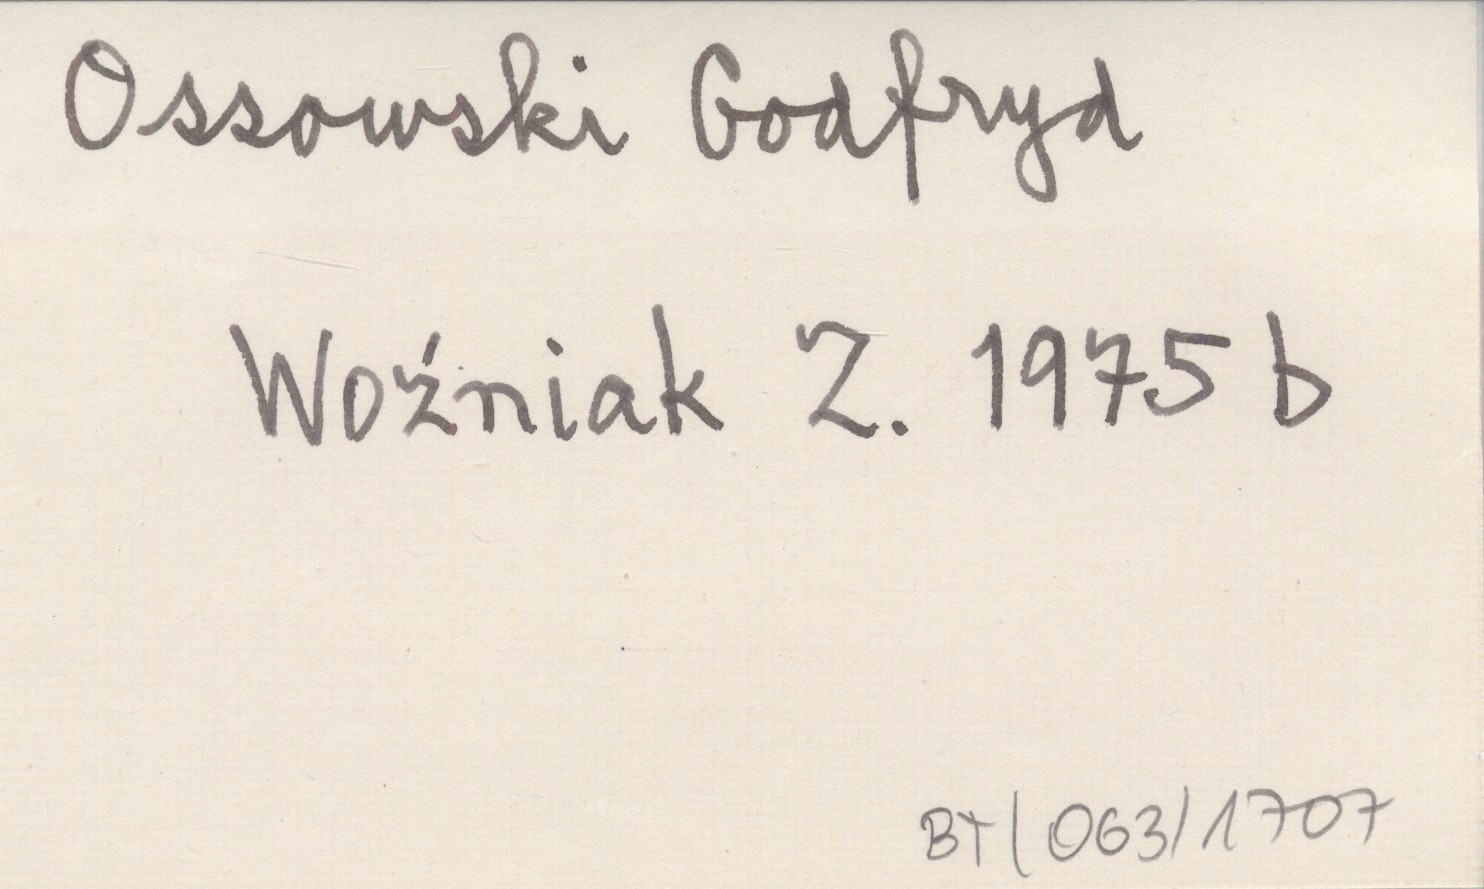 Ossowski Godfryd
Woźniak Z. 1975 b
BT/063/1707